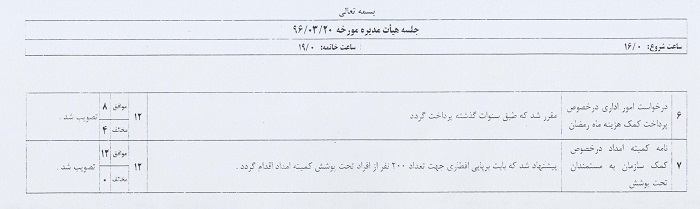 بسمه تعالی
جلسه هیأت مدیره مورخه ۹۶/۰۳/۲۰
ساعت شروع: ۱۶/۰ ساعت خاتمه: ۱۹/۰
۶ درخواست امور اداری درخصوص پرداخت کمک هزینه ماه رمضان مقرر شد که طبق سنوات گذشته پرداخت گردد ۱۲ موافق ۸ مخالف ۴ تصویب شد.
۷ نامه کمیته امداد درخصوص کمک سازمان به مستمندان تحت پوشش پیشنهاد شد که بابت برپایی افطاری جهت تعداد ۲۰۰ نفر از افراد تحت پوشش کمیته امداد اقدام گردد. ۱۲ موافق ۱۲ مخالف ۰ تصویب شد.